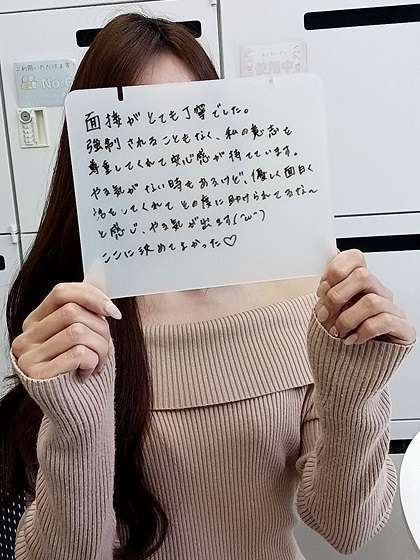 ご利用いただけます
No
使用中
面接がとても丁寧でした。
強制されることもなく、私の意志を
尊重してくれて安心感が持てています。
やる気がない時もあるけど、優しく面白く
話をしてくれてその度に助けられてるな〜
と感じ、やる気が出ます(^ω^)
ここに決めてよかった♡